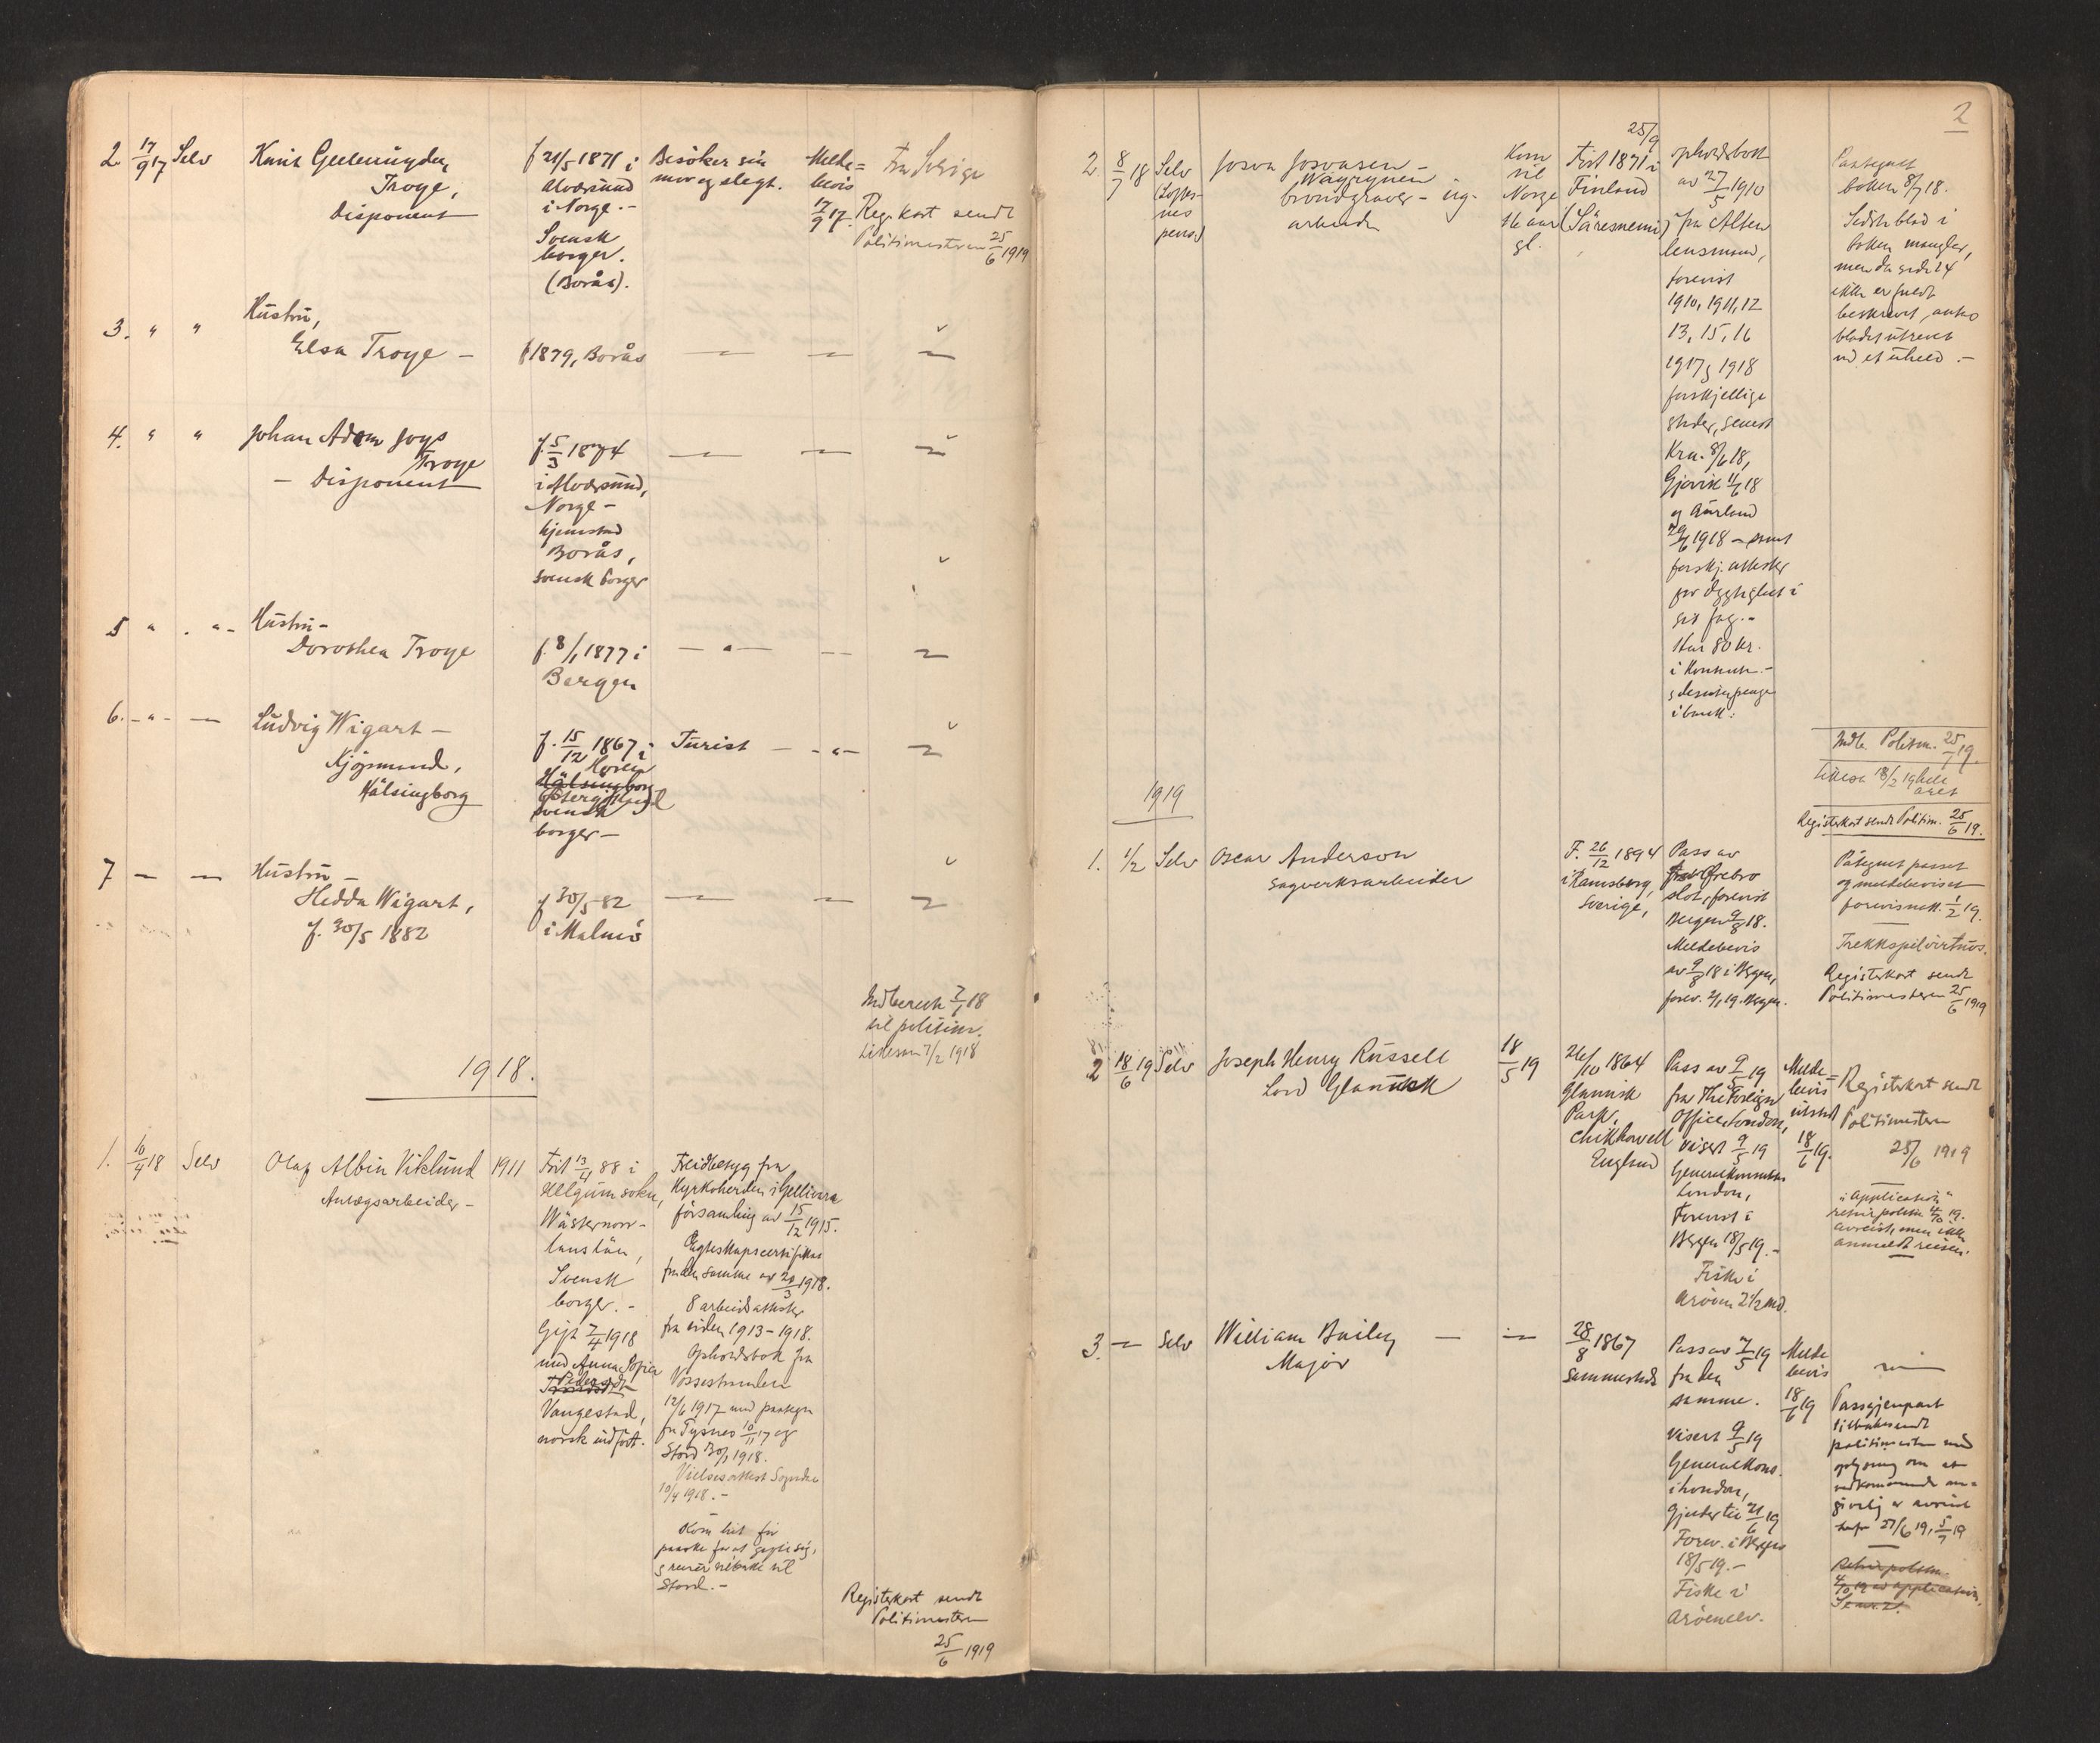 2. 17/9 17 Selv
Knut Geelmuyden
Troye,
Disponent
f 21/5 1871 i
Alversund
i Norge.-
Svensk
borger.
(Borås).
Besöker sin
mor og slegt.
Melde=
bevis
17/9 17.
Fra Sverige
Reg. kort sendt
Politimesteren 25/6 1919
3. " "
Hustru,
Elsa Troye -
f 1879, Borås
4. " "
Johan Adam Joys
Troye
- Disponent
f. 5/3 1874
i Alversund,
Norge -
hjemsted
Borås,
svensk borger
5 " "
Hustru -
Dorothea Troye
f. 8/1 1877 i
Bergen
6. - " -
Ludvig Wigart -
Kjøpmand,
Hälsingborg
f. 15/12 1867 i
Hälsingborg
svensk
borger -
Turist - - " -
7 -
Hustru -
Hedda Wigart,
f. 30/5 1882
f 30/5 82
i Malmö
Indberett 7/1 18
til politim.
Likesom 7/2 1918
1918.
1. 10/4 18 Selv
Olaf Albin Viklund
Anlægsarbeider -
1911
Født 13/4 88 i
Helgum sokn,
Wästernorr-
lans län,
Svensk
borger. -
Gift 7/4 1918
med Anna Sofia
Pedersdtr
Vangestad,
norsk indfødt.
Freidbetyg fra
Kyrkoherden i Gellivara
församling av 15/12 1915.
Egteskapscertifikat
fra den samme av 20/3 1918.
8 arbeidsattester
fra tiden 1913-1918.
Opholdsbok fra
Vossestranden
12/6 1917 med paategn
fra Tysnes 10/11 17 og
Stord 30/1 1918.
Vielsesattest Sogndal
10/4 1918. -
Kom hit før
paaske for at gifte sig,
og reiser tilbake til
Stord. -
Registerkort sendt
Politimesteren
25/6 1919
2
2. 8/7 18 Selv
(Losje-
res
pens.)
Josva Josvasen -
Wäyrynen
brøndgraver - og
arbeider
Kom
til
Norge
16 aar
gl.
25/9
Født 1871 i
Finland
(Säresnemi)
opholdsbok
av 27/5 1910
fra Alten
lensmand,
forevist
1910, 1911, 12
13, 15, 16
1917 og 1918
forskjellige
steder, senest
Kra. 8/6 18,
Gjøvik 11/6 18
og Aurland
1918 - samt
forskj. attester
for dygtighet i
sit fag. -
Har 80 kr.
i kontant -
i bank.
Paategnet
boken 8/7 18.
Sidste blad i
boken mangler,
men da side 24
ikke er fuldt
beskrevet, antas
bladet utrevet
ved et uheld. -
Indb. Politim. 25/7 19.
Likesa 18/2 19 hele
året
Registerkort sendt Politim. 25/6 19.
1919
1. 1/2 Selv
Oscar Anderson
sagverksarbeider
F. 26/12 1894
i Ramsberg,
Sverige,
Pass av
Örebro
slot, forevist
Bergen 9/8 18.
Meldebevis
av 9/8 18 i Bergen,
forev. 2/1 19. Bergen.
Påtegnet passet
og meldebeviset
forevisnett. 1/2 19.
Trekkspilvirtuos.
Registerkort sendt
Politimesteren 25/6 1919
2 18/6 19 Selv
Joseph Henry Russell
Lord Glanusk
18/5 19
26/10 1864
Glanusk
Park,
Chikhowell
England
Pass av 9/5 19
fra The Foreign
Office, London,
Visert 9/5 19
Generalkonsulatet
London,
Forevist i
Bergen 18/5 19. -
Fiske i
Aröien 2 1/2 md.
Melde=
bevis
utstedt
18/6 19.
Registerkort sendt
Politimesteren
25/6 1919
"Application"
retur politim 4/10 19.
avreist, men ikke
anmeldt reisen.
3. - Selv
William Bailey
Major
28/8 1867
Sommersteds
Pass av 7/5 19
fra den
samme.
Visert 9/5 19
Generalkons.
i London,
Gjelder til 21/6 19
Forev. i Bergen
18/5 19. -
Fiske i
Aröenelv.
Melde
bevis
18/6 19
Passgjenpart
tilbakesendt
politimesteren med
oplysning om at
vedkommende an=
givelig er avreist
27/6 19, 5/7 19
Retur politim.
4/10 19 av application,
Se nr. 2.